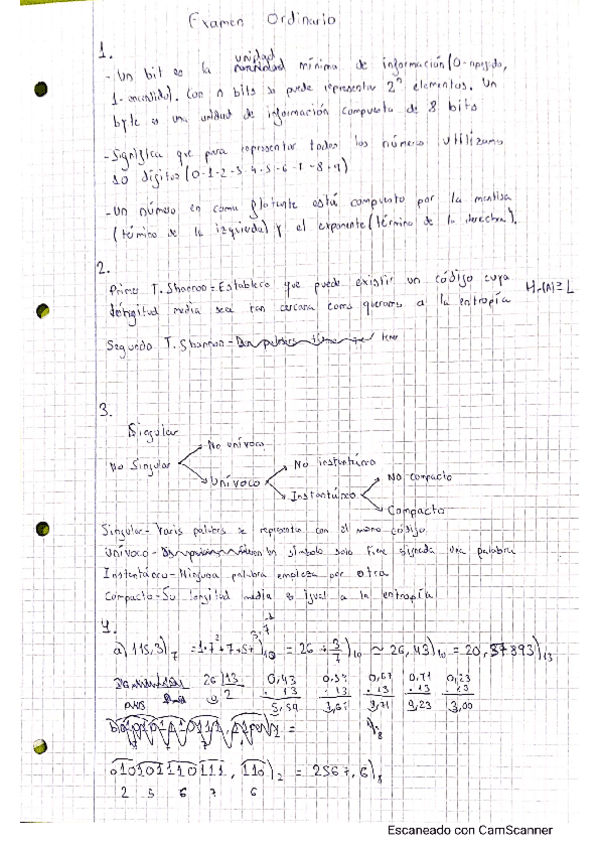 Examen Ordinario
1.
- Un bit es la unidad mínima de información (0-apagado,
1-encendido). Con n bits se puede representar 2^n elementos. Un
byte es una unidad de información compuesta de 8 bits
- Significa que para representar todos los número utilizamos
10 dígitos (0-1-2-3-4-5-6-7-8-9)
- Un número en coma flotante está compuesto por la mantisa
(término de la izquierda) y el exponente (término de la derecha).
2.
Primer T. Shannon = Establece que puede existir un código cuya
longitud media sea tan cercana como queramos a la entropía
Segundo T. Shannon =
3.
Singular
No Singular
No unívoco
Unívoco
No instantáneo
Instantáneo
No compacto
Compacto
Singular - Varias palabras se representan con el mismo código
Unívoco - Un símbolo solo tiene signada una palabra
Instantáneo - Ninguna palabra empieza por otra
Compacto - Su longitud media es igual a la entropía
4.
a) 115,3)7 = 1·7² + 7 + 5 + 3·7^-1)10 = 26 + 3/7)10 ≈ 26,43)10 = 20,)13
26 | 13 0,43
0 2 · 13 · 13 · 13 · 13 · 13
5,59 9,23 3,00
b)
010101110111, 110)2 = 2567,6)8
2 5 6 7 6
Escaneado con CamScanner